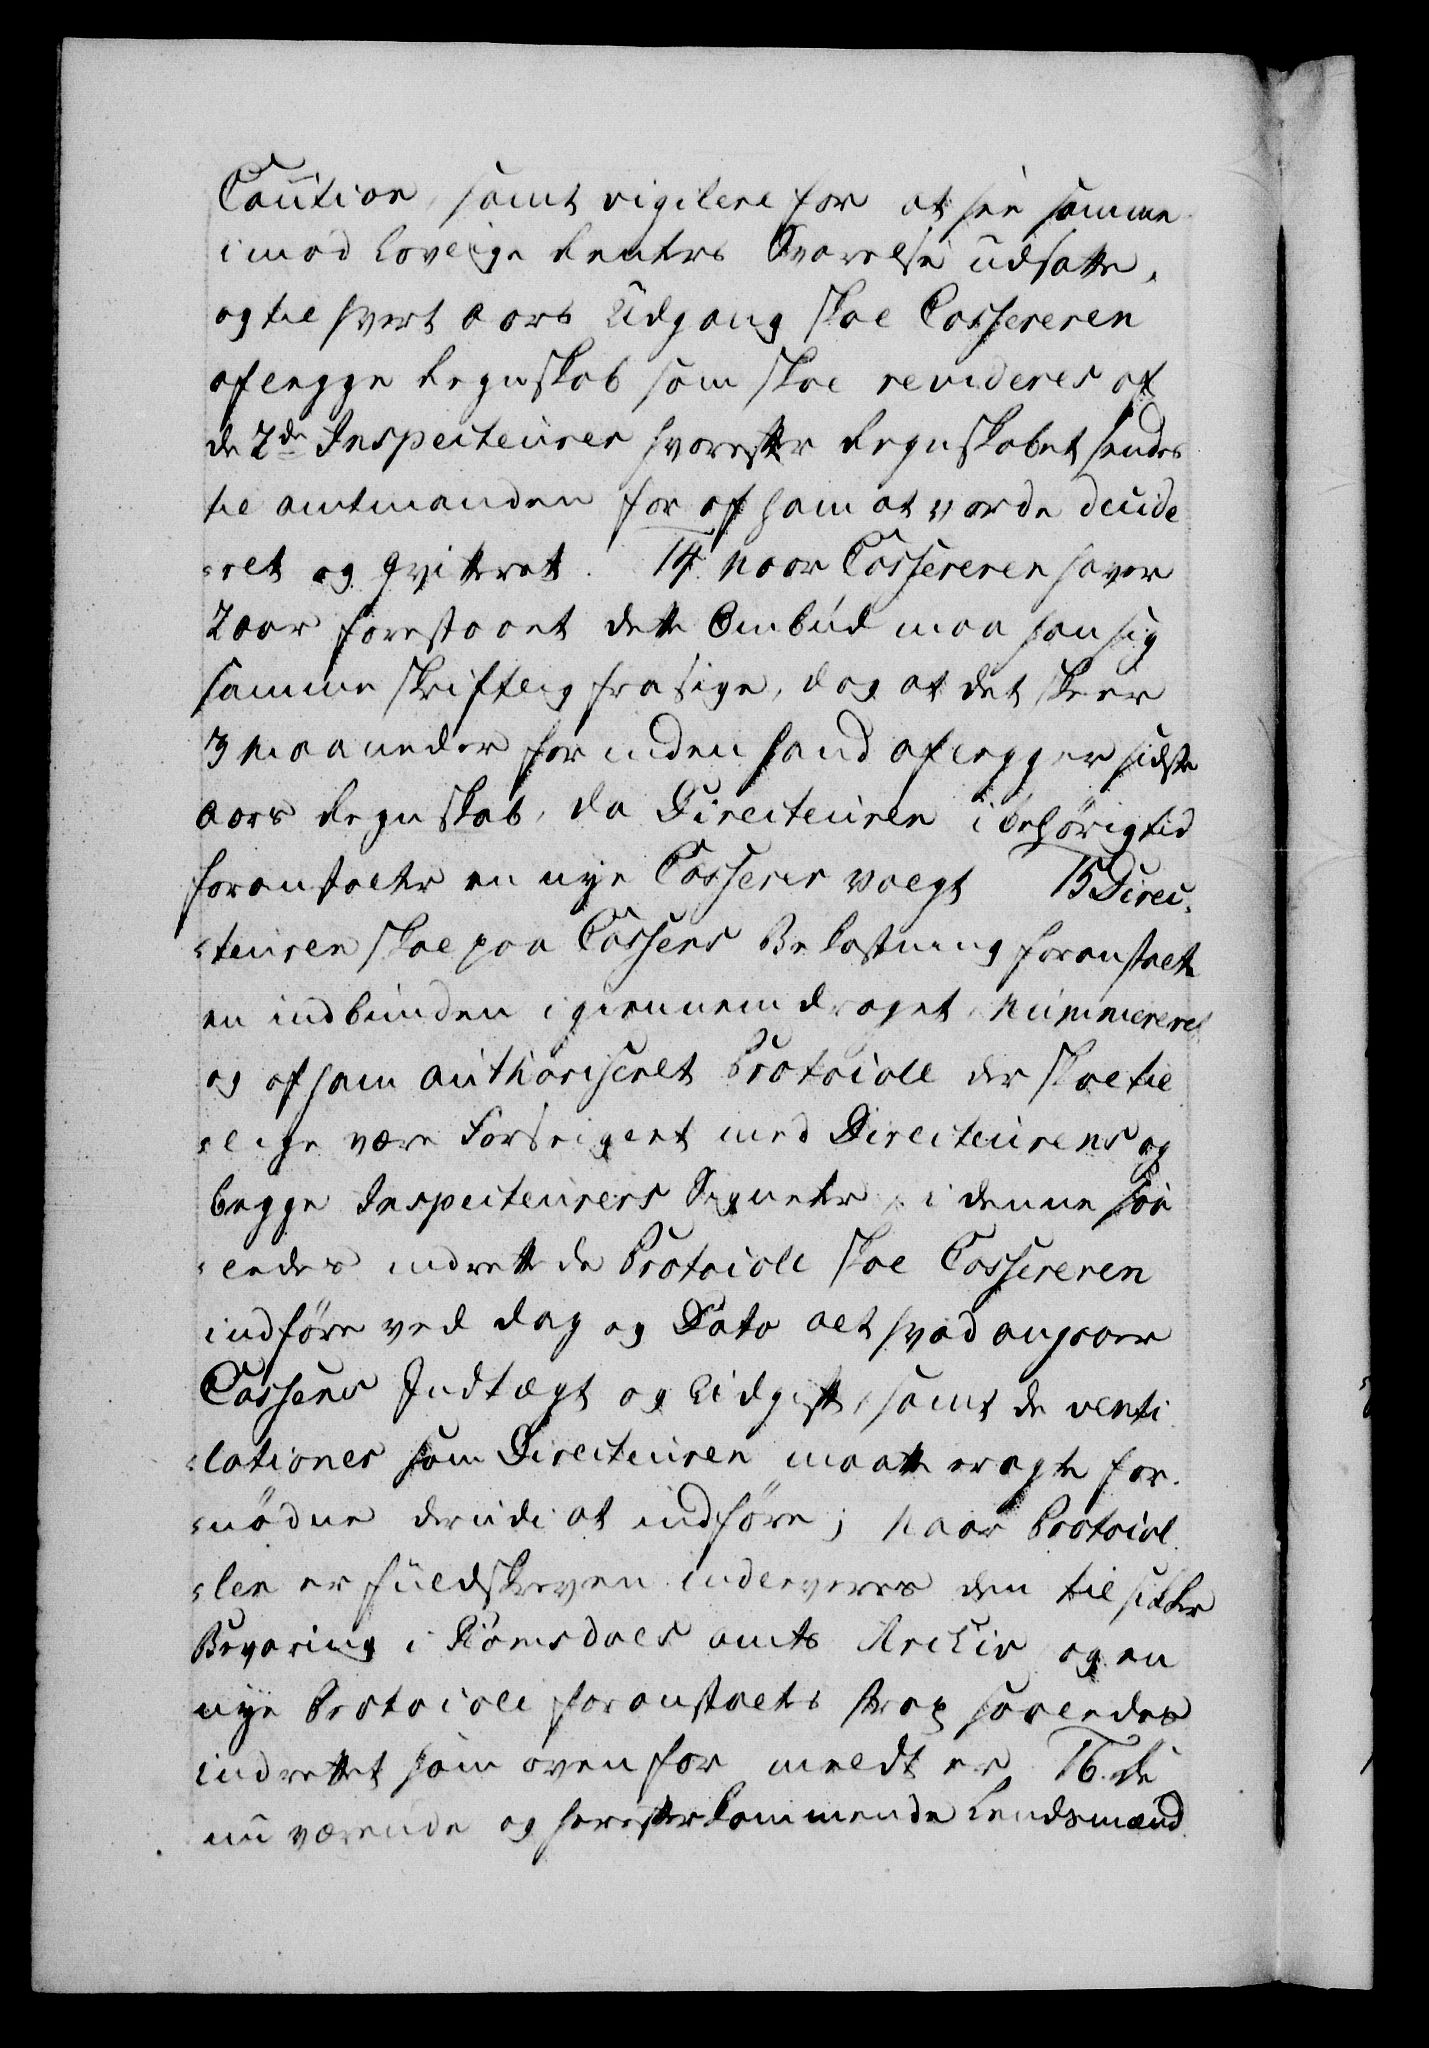 Caution, samt vigilere for at see samme
imod lovlige Renters Svarelse udsatte,
og til hvert aars Udgang skal Cassereren
aflegge Regnskab som skal revideres af
de 2de Inspecteurer hvorefter Regnskabet sendes
til amtmanden for af ham at vorde decide
-ret og qvitteret. 14 naar Cassereren haver
2 aar forestaaet dette Ombud maa han sig
samme skriftlig frasige, dog at det skeer
3 maaneder for inden hand aflegger sidste
aars Regnskab, da Directeuren i behörig tid
foranstalter en nye Casserer valgt 15 Direc-
-teuren skal paa Cassens Bekostning foranstalte
en indbunden igiennemdraget, nummereret
og af ham authoriseret Protocoll der skal til
-lige være forseiglet med Directeurens og
begge Inspecteurers Signeter, i denne saa
-ledes indrettede Protocoll skal Cassereren
indföre ved dag og Dato alt hvad angaaer
Cassens Indtægt og Udgift, samt de venti
-lationer som Directeuren maatte eragte for-
-nödne derudi at indföre; naar Protocol
-len er fuldskreven indleveres den til sikker
Bevaring i Romsdals amts Archiv og en
nye Protocoll foranstaltes strax saaledes
indrettet som ovenfor meldt er 16. De
nu værende og herefterkommende Lendsmænd